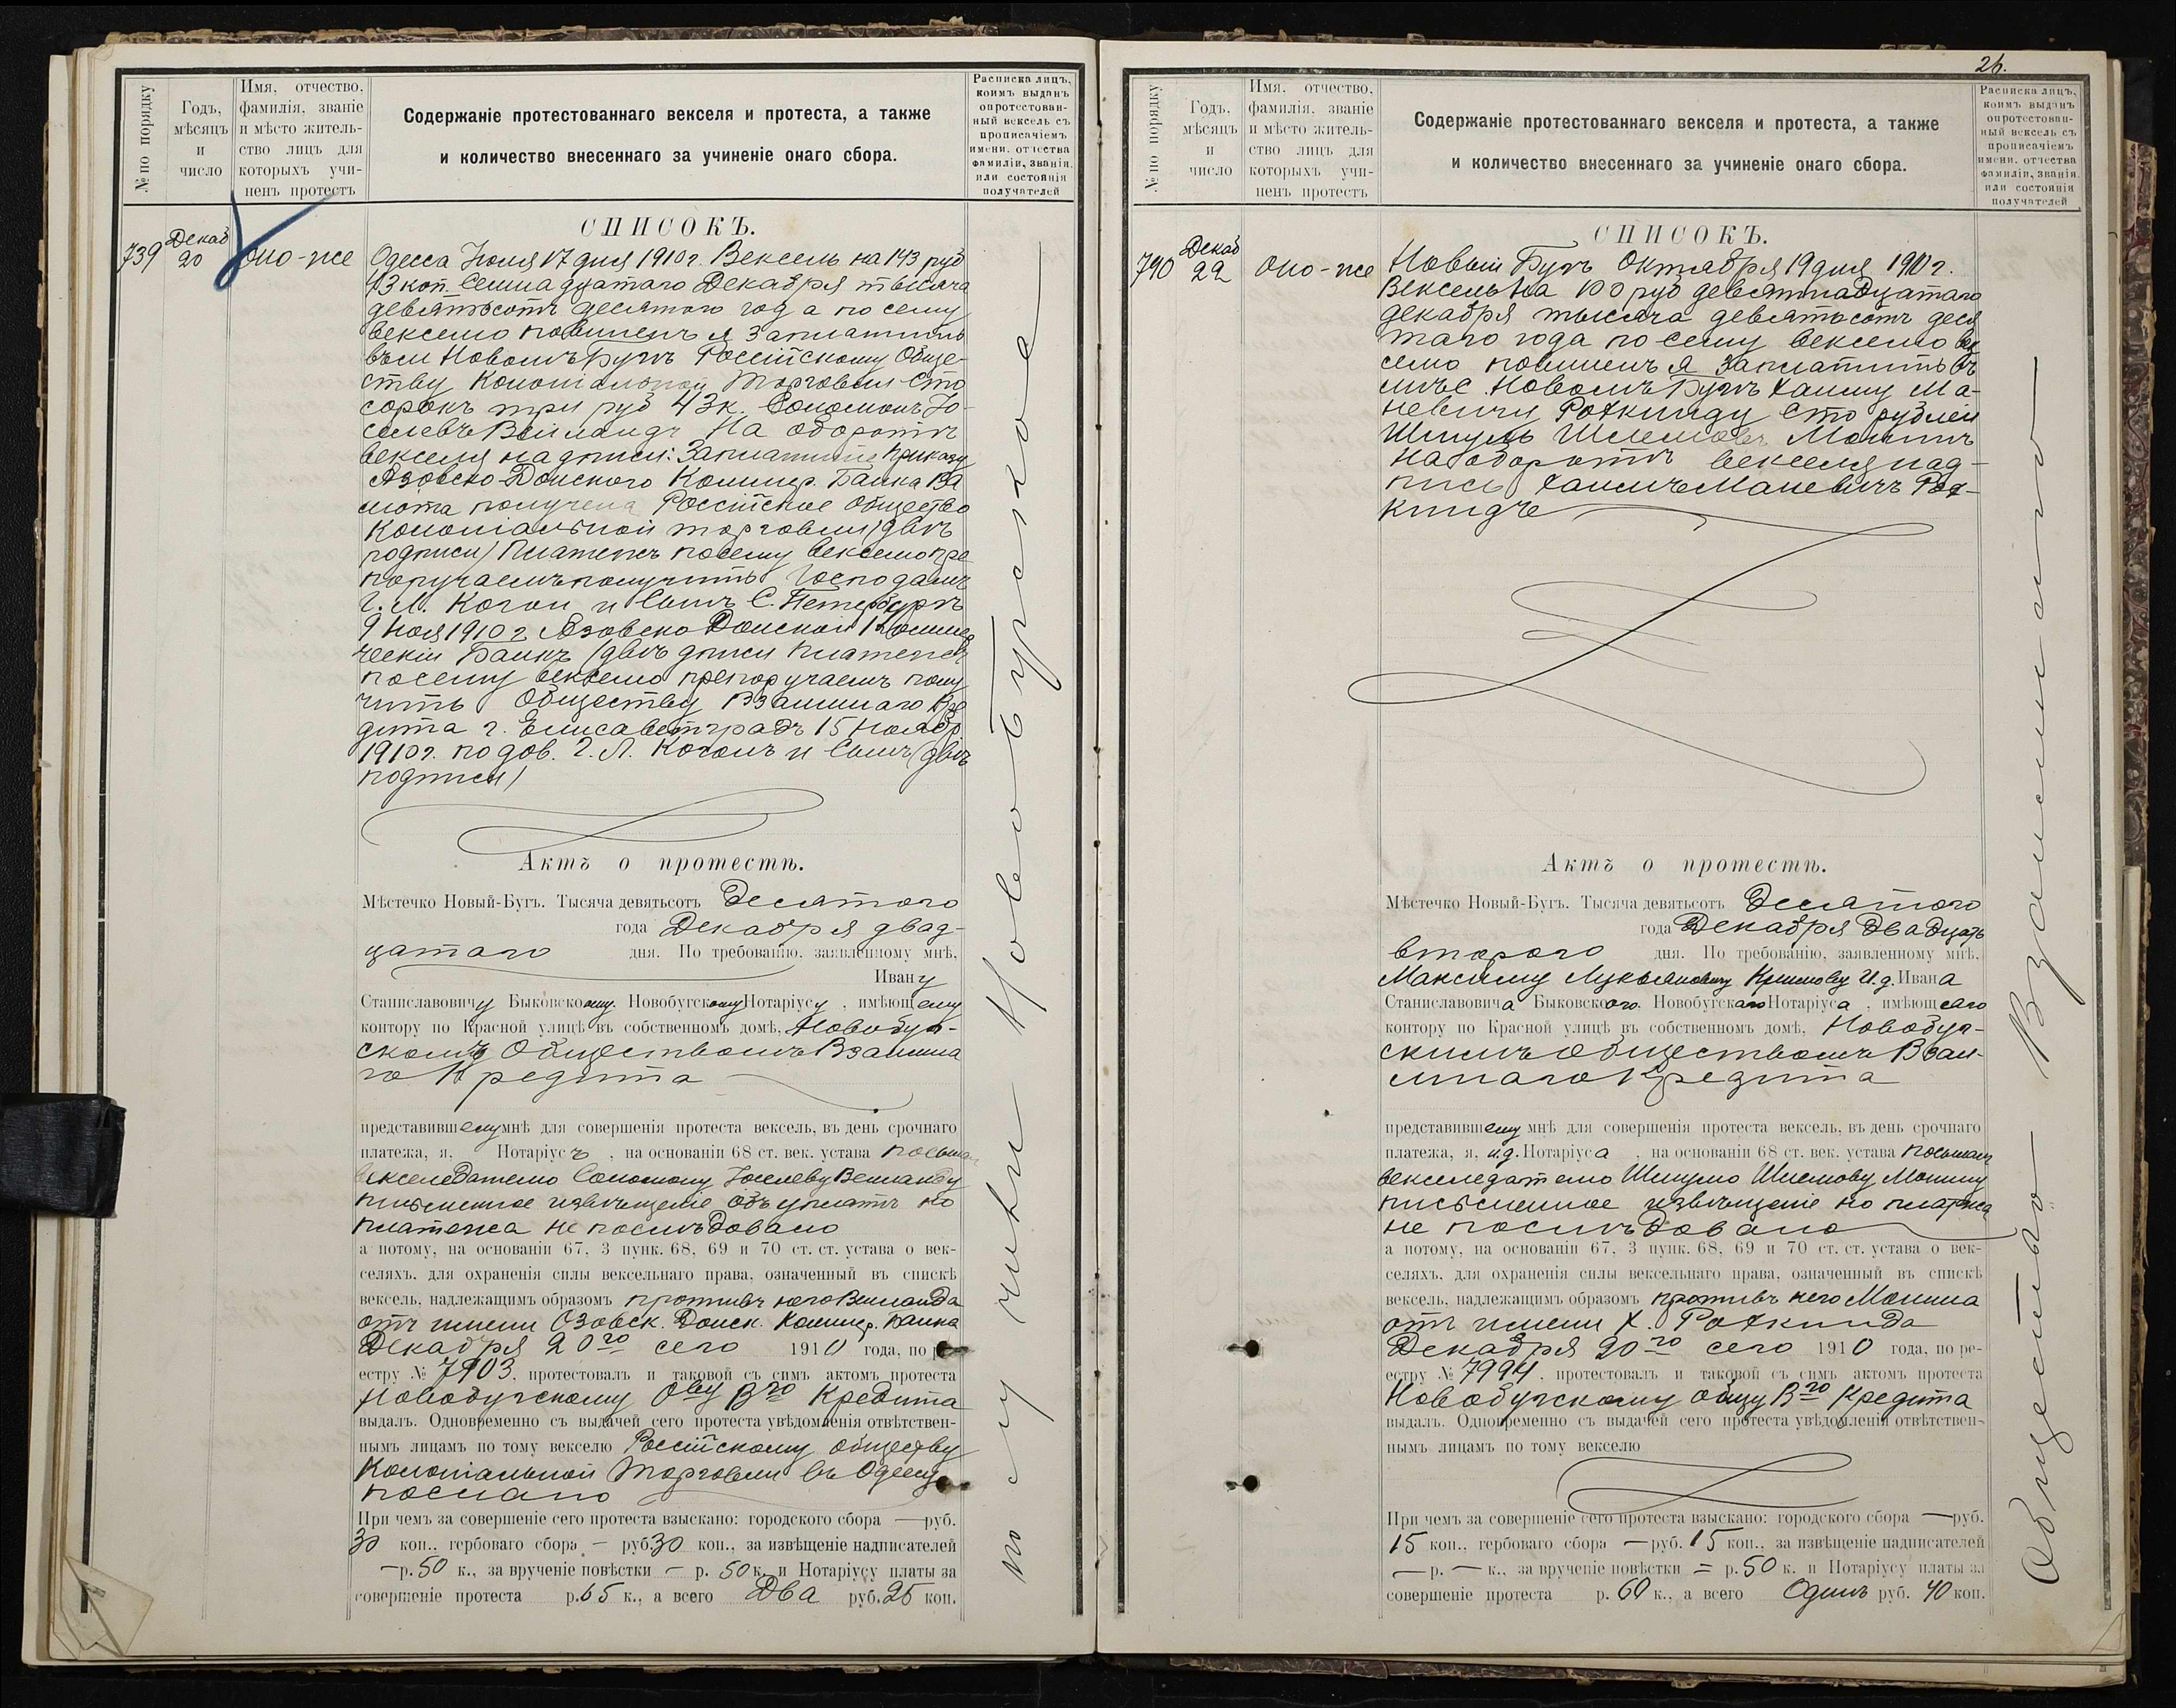 № по порядку
Годъ, мѣсяцъ и число
Имя, отчество, фамилія, званіе и мѣсто жительство лицъ для которыхъ учиненъ протестъ
Содержаніе протестованнаго векселя и протеста, а также
и количество внесеннаго за учиненіе онаго сбора.
Расписка лицъ, коимъ выданъ опротестованный вексель съ прописаніемъ имени, отчества фамиліи, званія или состоянія получателей
СПИСОКЪ.
739
Декаб
20
Оно-же
Одесса Іюля 17 дня 1910 г. Вексель на 143 руб
43 коп. Семнадцатаго Декабря тысяча
девятьсотъ десятого года по сему
векселю повиненъ я заплатить
въ м Новомъ Бугѣ Россійскому Обще-
ству Колоніальной Торговли Сто
сорокъ три руб 43 к. Соломонъ Іо-
селевъ Вейландъ На оборотѣ
векселя надписи: Заплатите приказу
Азовско-Донского Коммер. Банка Ва
люта получена Россійское Общество
Колоніальной торговли (двѣ
подписи) Платежъ посему векселю пре
поручаемъ получить Господамъ
Г. Л. Коган и Сынъ С. Петербургъ
9 Ноя 1910 г. Азовско Донской Коммер
ческій Банкъ (двѣ дписи Платежъ
посему векселю препоручаемъ полу
чить Обществу Взаимнаго Кре
дита г. Елисаветградъ 15 Ноябр
1910 г. по дов. Г. Л. Коганъ и Сынъ (двѣ
подписи)
Актъ о протестѣ.
Мѣстечко Новый-Бугъ. Тысяча девятьсотъ Десятого
года Декабря двад-
цатаго дня. По требованію, заявленному мнѣ,
Ивану
Станиславовичу Быковскому, Новобугскому Нотаріусу, имѣющему
контору по Красной улицѣ въ собственномъ домѣ, Новобуг-
скомъ Обществомъ Взаимна
го Кредита
представившему мнѣ для совершенія протеста вексель, въ день срочнаго
платежа, я, Нотаріусъ, на основаніи 68 ст. век. устава послалъ
векселедателю Соломону Іоселеву Вейланду
письменное извѣщеніе объ уплатѣ но
платежа не послѣдовало
а потому, на основаніи 67, 3 пунк. 68, 69 и 70 ст. ст. устава о век-
селяхъ, для охраненія силы вексельнаго права, означенный въ спискѣ
вексель, надлежащимъ образомъ противъ него Вейланда
отъ имени Озовск. Донск. Коммер. Банка
Декабря 20го сего 1910 года, по ре-
естру № 7903, протестовалъ и таковой съ симъ актомъ протеста
Новобугскому Ову Вго Кредита
выдалъ. Одновременно съ выдачей сего протеста увѣдомленія отвѣтствен-
нымъ лицамъ по тому векселю Россійскому обществу
Колоніальной Торговли въ Одессу
послано
При чемъ за совершеніе сего протеста взыскано: городского сбора — руб.
30 коп., гербоваго сбора — руб. 30 коп., за извѣщеніе надписателей
— р. 50 к., за врученіе повѣстки — р. 50 к. и Нотаріусу платы за
совершеніе протеста р. 65 к., а всего Два руб. 25 коп.
26.
№ по порядку
Годъ, мѣсяцъ и число
Имя, отчество, фамилія, званіе и мѣсто жительство лицъ для которыхъ учиненъ протестъ
Содержаніе протестованнаго векселя и протеста, а также
и количество внесеннаго за учиненіе онаго сбора.
Расписка лицъ, коимъ выданъ опротестованный вексель съ прописаніемъ имени, отчества фамиліи, званія или состоянія получателей
СПИСОКЪ.
740
Декаб
22
Оно-же
Новый Бугъ Октября 19 дня 1910 г.
Вексель на 100 руб девятнадцатаго
декабря тысяча девятьсотъ деся
таго года по сему векселю век
селю повиненъ я заплатить въ
мѣс. Новомъ Бугѣ Хаиму Ма-
невичу Роткинду Сто рублей
Шмуль Шлемовъ
На оборотѣ векселя над-
пись Хаимъ Маневичъ Рот-
киндъ
Актъ о протестѣ.
Мѣстечко Новый-Бугъ. Тысяча девятьсотъ Десятого
года Декабря Двадцать
второго дня. По требованію, заявленному мнѣ,
Максиму Лукьяновичу И.д. Ивана
Станиславовича Быковского, Новобугскаго Нотаріуса, имѣющаго
контору по Красной улицѣ въ собственномъ домѣ, Новобуг-
скимъ Обществомъ Взаи-
мнаго Кредита
представившему мнѣ для совершенія протеста вексель, въ день срочнаго
платежа, я, и.д. Нотаріуса, на основаніи 68 ст. век. устава послалъ
векселедателю Шмулю Шлемову
письменное извѣщеніе но платежа
не послѣдовало
а потому, на основаніи 67, 3 пунк. 68, 69 и 70 ст. ст. устава о век-
селяхъ, для охраненія силы вексельнаго права, означенный въ спискѣ
вексель, надлежащимъ образомъ противъ него
отъ имени Х. Роткинда
Декабря 20го сего 1910 года, по ре-
естру № 7994, протестовалъ и таковой съ симъ актомъ протеста
Новобугскому общу Вго Кредита
выдалъ. Одновременно съ выдачей сего протеста увѣдомленія отвѣтствен-
нымъ лицамъ по тому векселю
При чемъ за совершеніе сего протеста взыскано: городского сбора — руб.
15 коп., гербоваго сбора — руб. 15 коп., за извѣщеніе надписателей
— р. — к., за врученіе повѣстки = р. 50 к. и Нотаріусу платы за
совершеніе протеста р. 60 к., а всего Одинъ руб. 40 коп.
Общество Взаимнаго